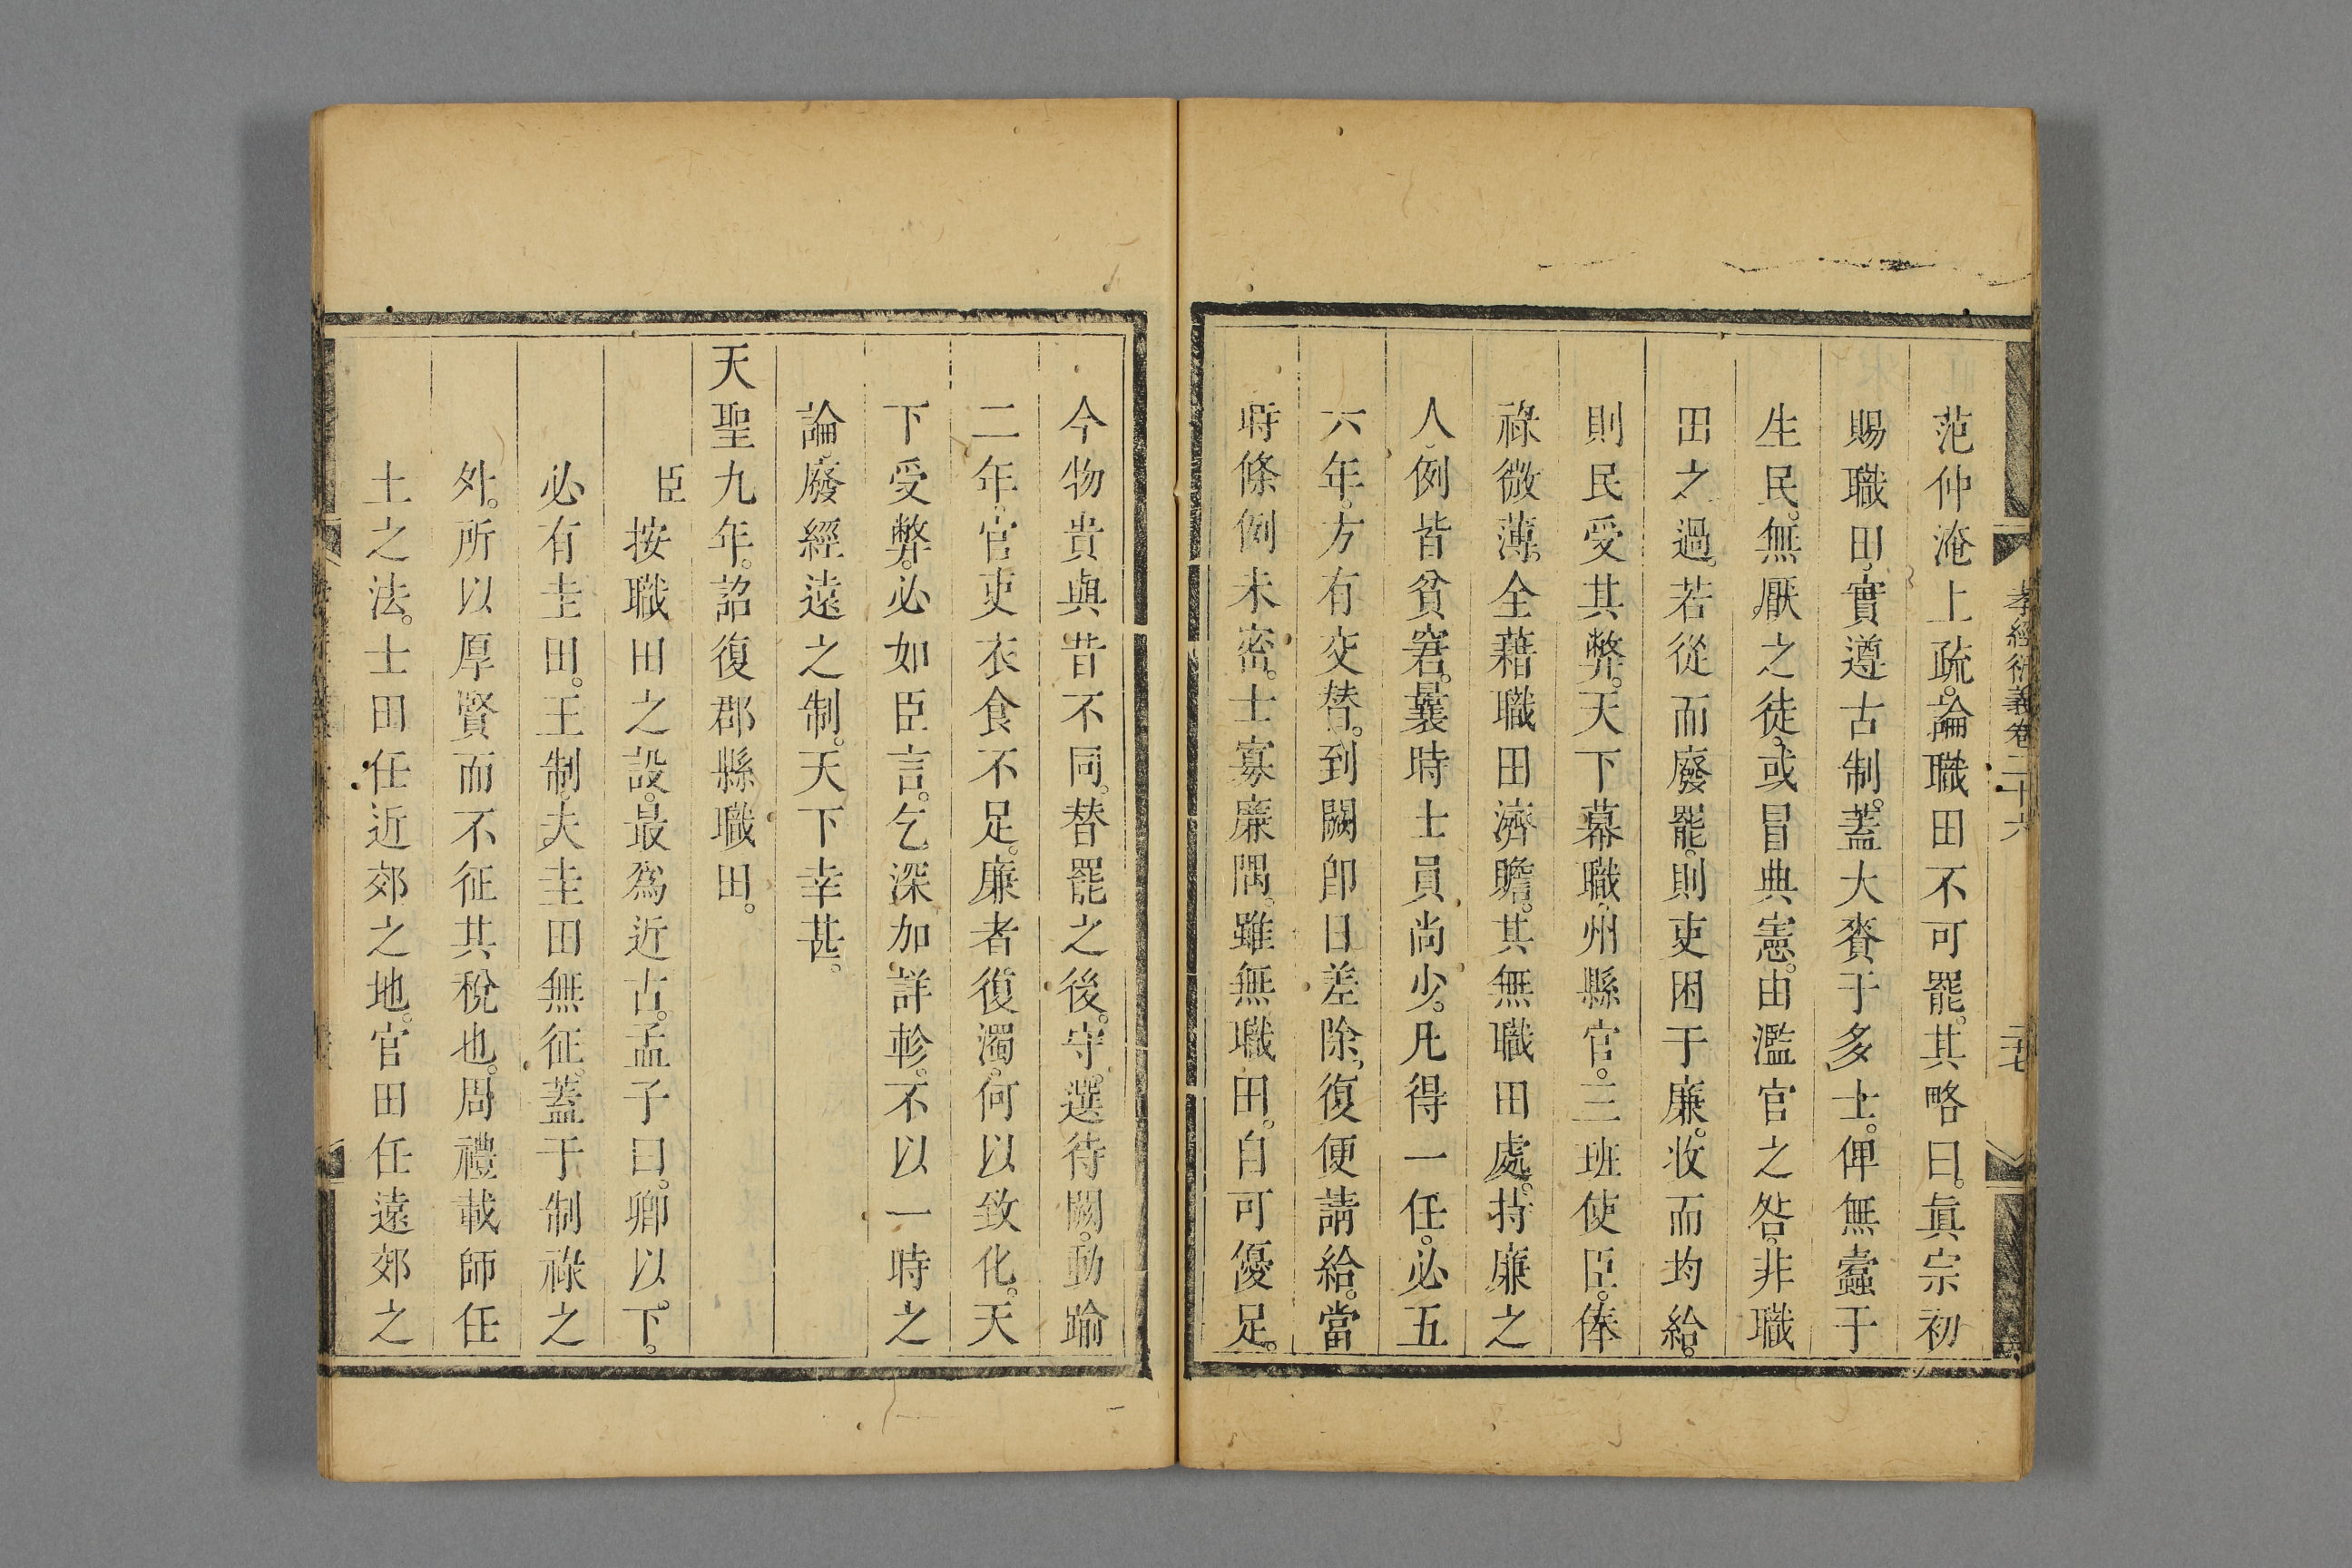 孝經衍義卷二十六
范仲淹上疏。論職田不可罷。其略曰。眞宗初
賜職田。實遵古制。蓋大賚于多士。俾無蠹于
生民。無厭之徒。或冒典憲。由濫官之咎。非職
田之過。若從而廢罷。則吏困于廉。收而均給。
則民受其弊。天下幕職。州縣官。三班使臣。俸
祿微薄。全藉職田濟贍。其無職田處。持廉之
人。例皆貧窘。曩時士員尚少。凡得一任。必五
六年。方有交替。到闕卽日差除。復便請給。當
時條例未密。士寡廉隅。雖無職田。自可優足。
今物貴與昔不同。替罷之後。守。選待闕。動踰
二年。官吏衣食不足。廉者復濁。何以致化。天
下受弊。必如臣言。乞深加詳軫。不以一時之
論。廢經遠之制。天下幸甚。
天聖九年。詔復郡縣職田。
臣按職田之設。最爲近古。孟子曰。卿以。下。
必有圭田。王制。夫圭田無征。蓋于制祿之
外。所以厚賢而不征其稅也。周禮載師任
土之法。士田任近郊之地。官田任遠郊之